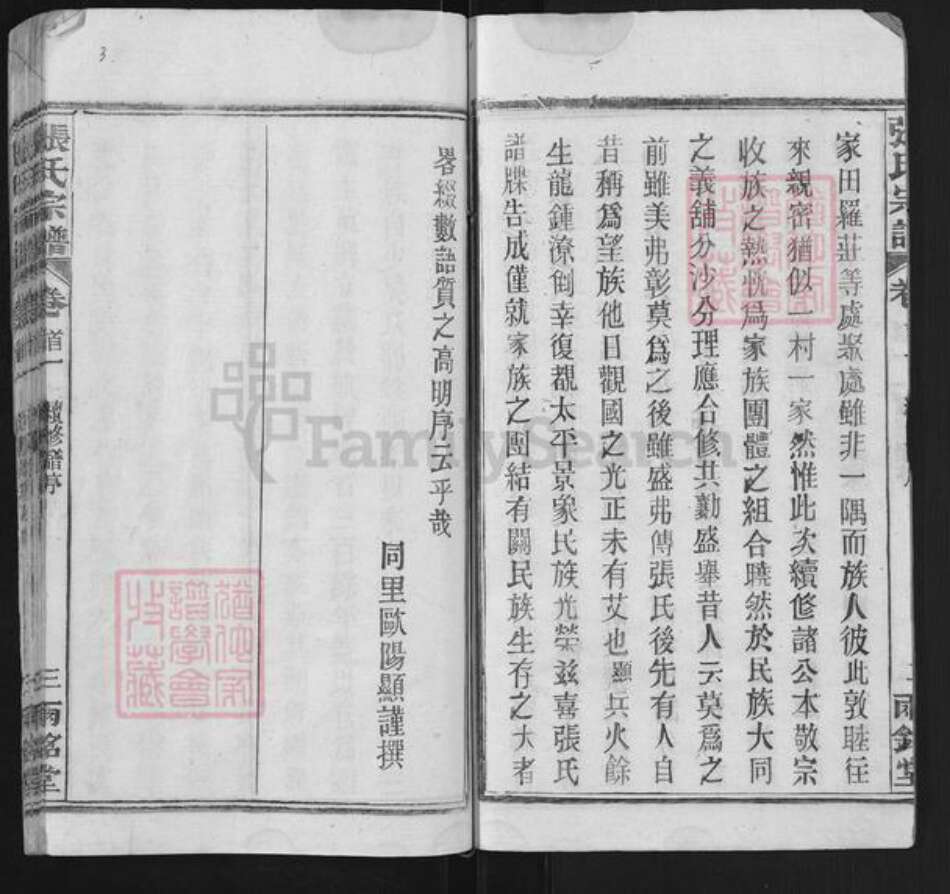 家田羅莊等處聚處雖非一隅而族人彼此敦睦往
來親密猶似一村一家然惟此次續修諸公本敬宗
收族之熱忱爲家族團體之組合曉然於民族大同
之義舖分沙分理應合修共勷盛舉昔人云莫爲之
前雖美弗彰莫爲之後雖盛弗傳張氏後先有人自
昔稱爲望族他日觀國之光正未有艾也顯兵火餘
生龍鍾潦倒幸復覩太平景象民族光榮茲喜張氏
譜牒告成僅就家族之團結有關民族生存之大者
畧綴數語質之高明序云乎哉
同里歐陽顯謹撰
張氏宗譜
卷首一
續修譜序
三
兩銘堂
3
FamilySearch